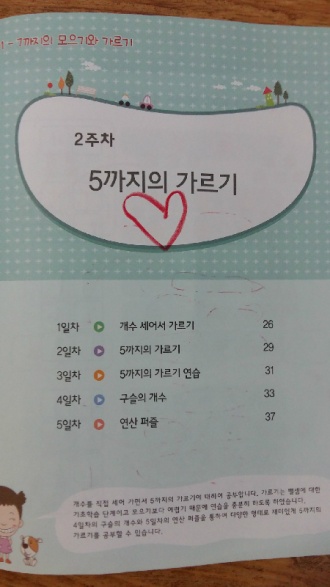 1 - 7까지의 모으기와 가르기
2주차
5까지의 가르기
1일차 개수 세어서 가르기 26
2일차 5까지의 가르기 29
3일차 5까지의 가르기 연습 31
4일차 구슬의 개수 33
5일차 연산 퍼즐 37
개수를 직접 세어 가면서 5까지의 가르기에 대하여 공부합니다. 가르기는 뺄셈에 대한
기초학습 단계이고 모으기보다 어렵기 때문에 연습을 충분히 하도록 하였습니다.
4일차의 구슬의 개수와 5일차의 연산 퍼즐을 통하여 다양한 형태로 재미있게 5까지의
가르기를 공부할 수 있습니다.